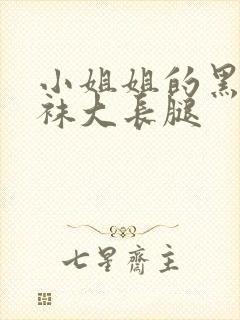 小姐姐的黑
袜大长腿
七星齋主